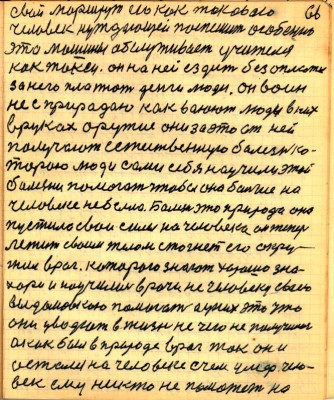 свой маршрут его как такового 66
человек нуждающей поспешит особенно
это машины обслуживает учителя
как такси. он на ней ездит без оплаты
за него платют денги люди. он воин
не с природаю как ваюют люди в них
в руках оружие они за это от ней
получают естественную болезнь ко-
торою люди сами себя научили этой
болезни помогат чтобы она больше на
человеке не была. Болизнь это природа она
пустила свои силы на человека он
летит своим телом стогнет его окру-
жил враг. которого знают харошо зна-
хари и научили врачи не человеку своею
выдумкою помогать а у них это это
они уводют в жизни не чего не получили
а как был в природе враг так он и
остался на человеке с чем умер чело-
век ему никто не поможет на